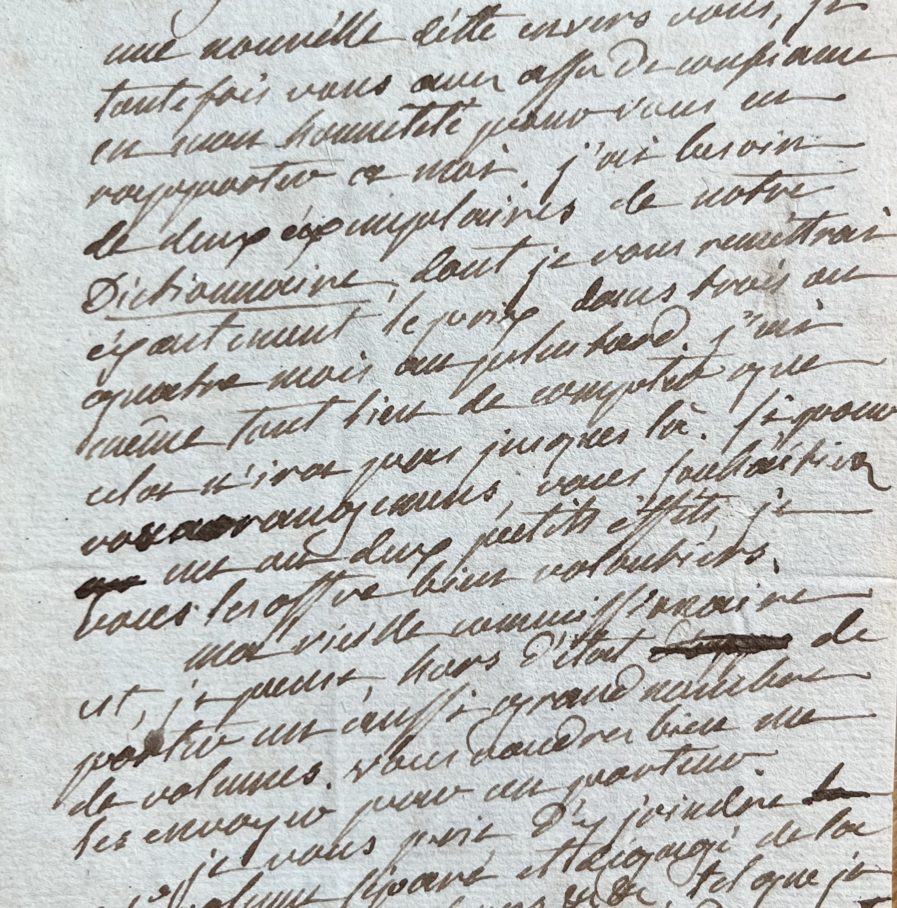 une nouvélle détte envers vous, si
toutefois vous avez assez de confiance
en mon honnêteté pour vous en
rapporter a moi. j'ai besoin
de deux éxemplaires de notre
Dictionnaire, dont je vous remettrai
également le prix dans trois ou
quatre mois au plus tard. j'ai
même tout lieu de compter que
cela n'ira pas jusques là. Si pour
vos arrangemens, vous souhaitiez
un ou deux petits éffets, je
vous les offre bien volontiers.
ma vieille commissionnaire
est, je pense, hors d'état de
porter un aussi grand nombre
de volumes. vous voudrez bien me
les envoyer par un porteur
je vous prie d'y joindre
volume séparé et dégagé de la
tel que je